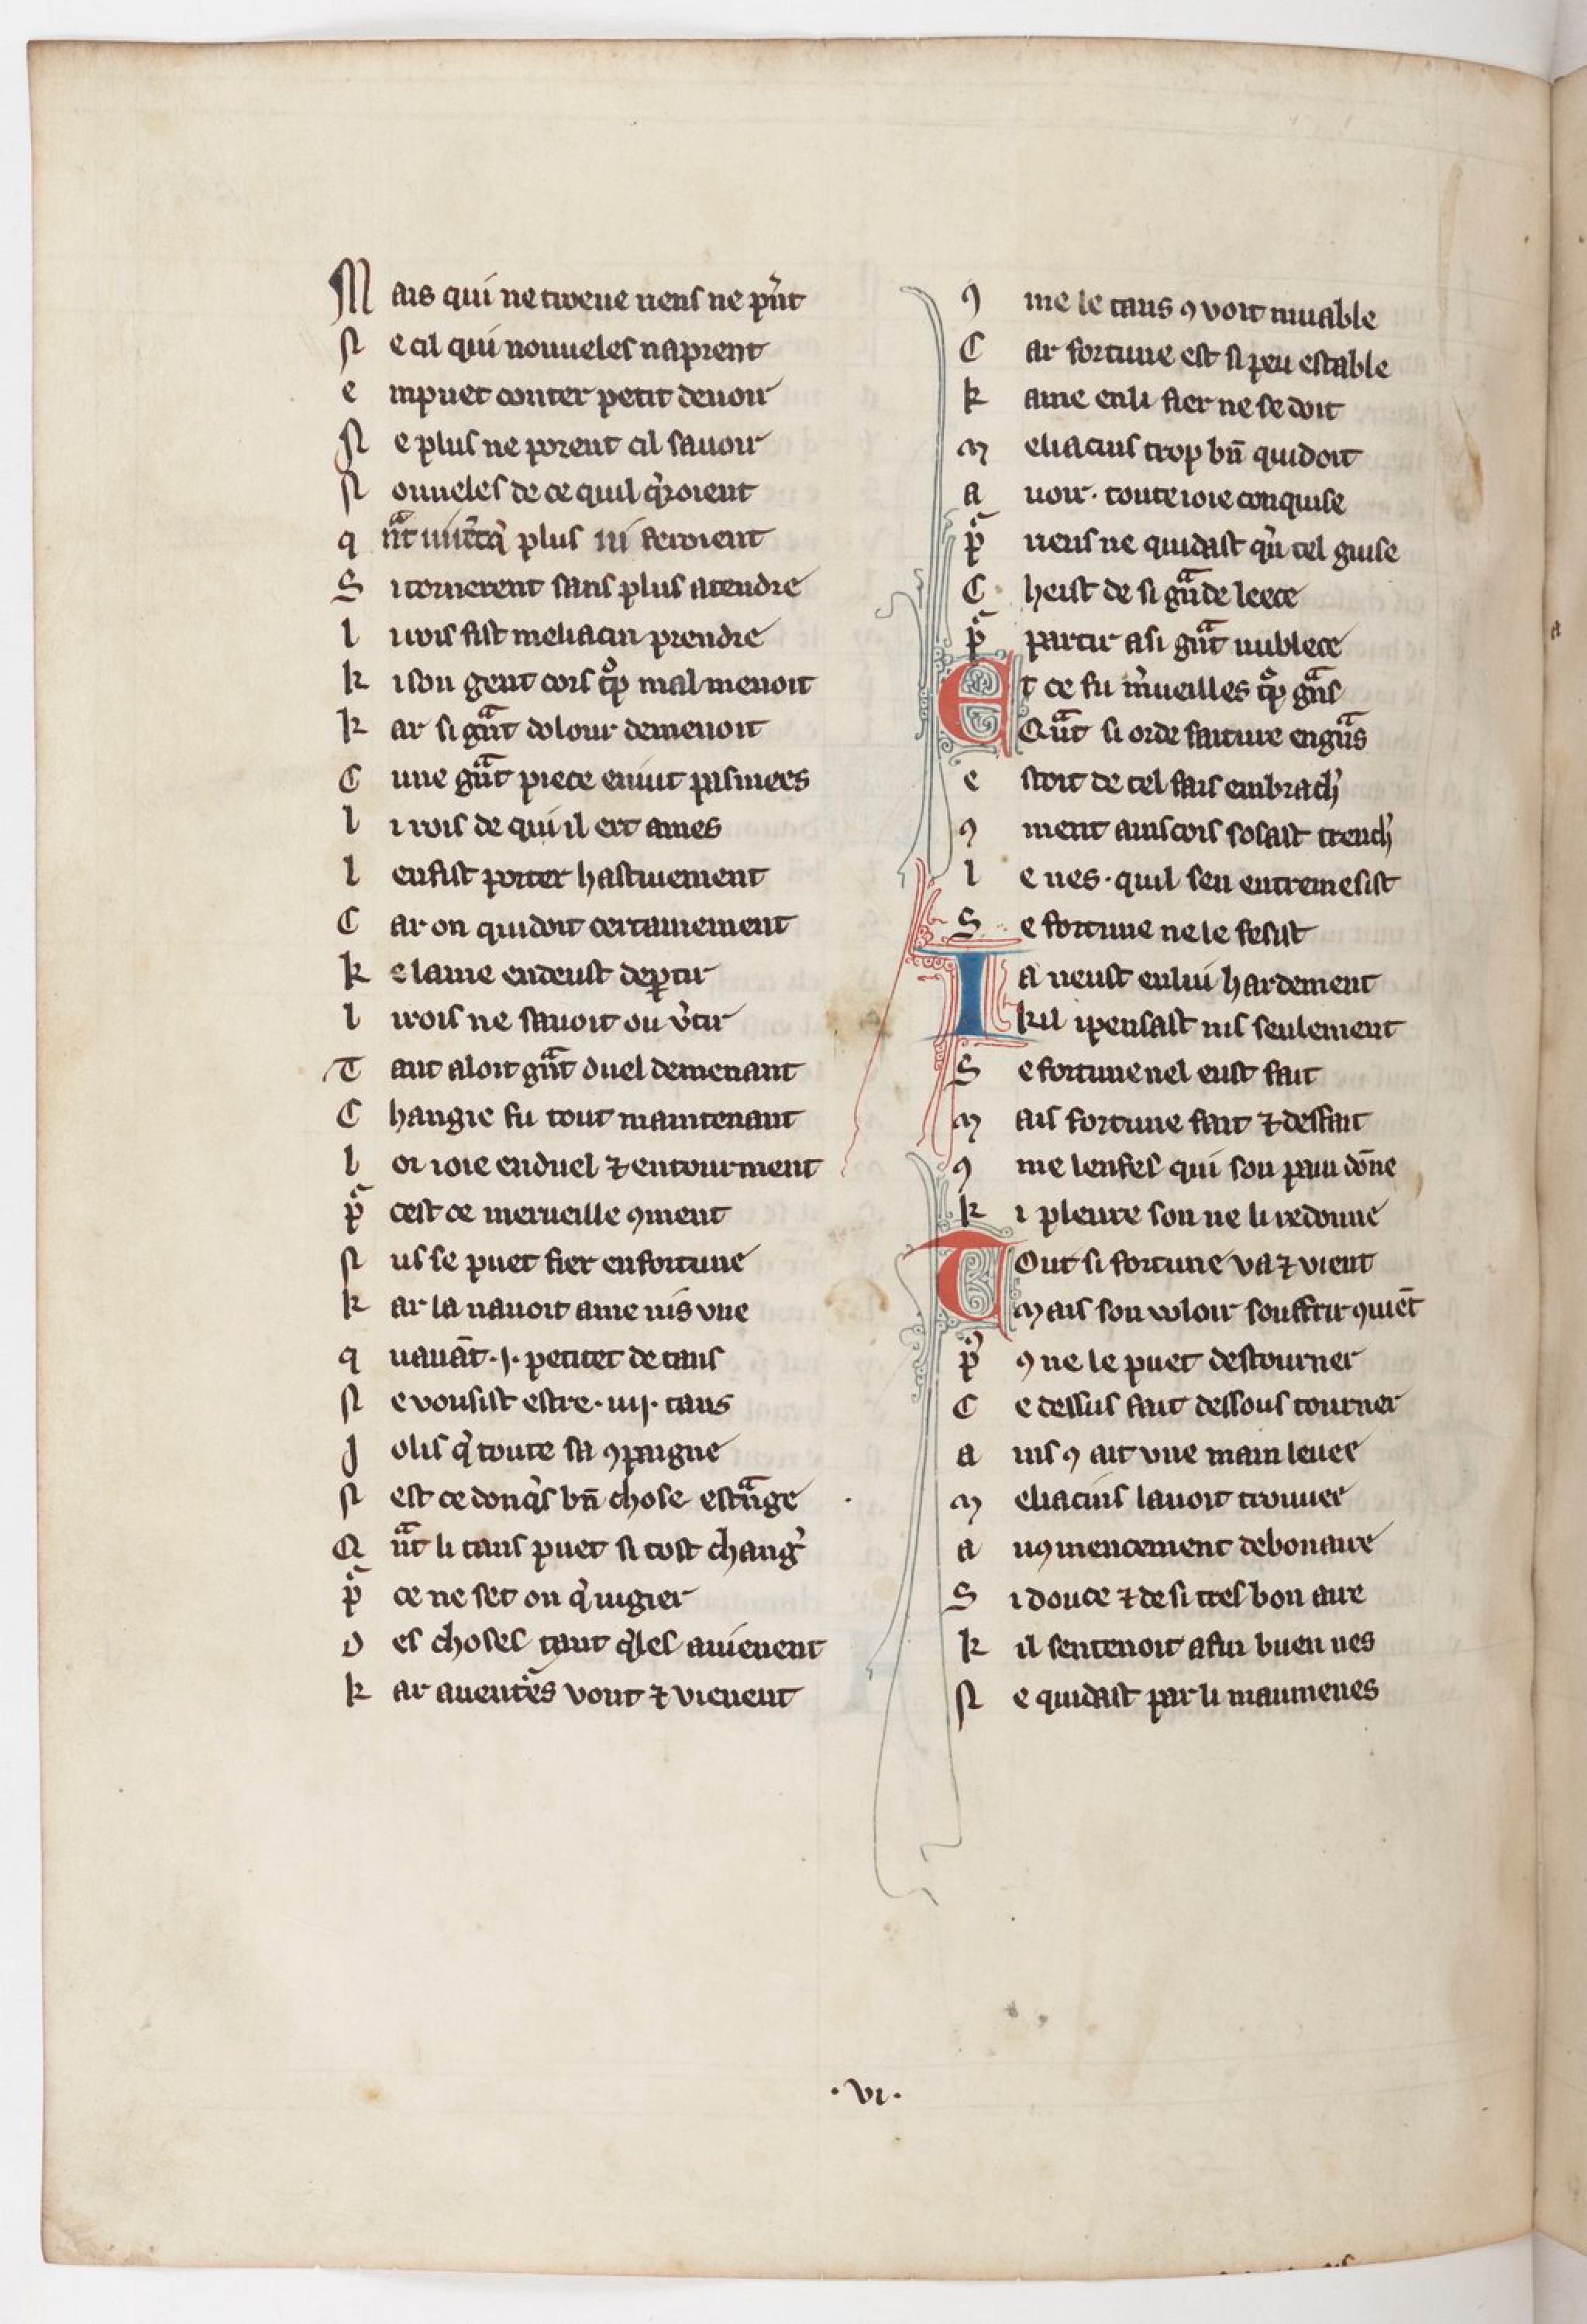 Mais qui ne troeue riens ne pͥnt
Ne cil qui nouueles naprent
enpuet conter petit deuoir
Ne plus ne porent cil sauoir
Nouueles de ce quil qͥroient
plus feroient
Si tornerent sans plus atendre
li rois fist meliacin prendre
ki son gent cors tͦp mal menoit
kar si gᷓnt dolour demenoit
Cune gᷓnt piece en iut pasmees
li rois de qui il ert ames
len fist porter hastiuement
Car on quidoit certainement
ke lame en deust deꝑtir
li rois ne sauoit ou v̓tir
Tant aloit gᷓnt duel demenant
Changie fu tout maintenant
loi ioie en duel ⁊ entourment
pᷓ cest ce merueille ꝯment
Nus se puet fier en fortune
kar la nauoit ame nis vne
qi auāt ·j· petitet de tans
Ne vousist estre ·iiij· tans
Jolis qͥ toute sa ꝯpaignie
Nest ce donqͥs bn̄ chose estᷓnge
Qᷓnt li tans puet si tost changͥ
pᷓ ce ne set on qͥ iugier
Des choses tant qͥles auienent
kar auentᷓes vont ⁊ vienent
ꝯme le tans ꝯ voit muable
Car fortune est si peu estable
kame en li fier ne se doit
Meliacins trop bn̄ quidoit
auoir · toute ioie conquise
pᷓ riens ne quidast qͥn tel guise
Cheist de si gᷓnde leece
pᷓ partir a si gᷓnt nublece
Et ce fu m̓ueilles tͦp gᷓns
Qᷓnt si orde faiture engᷓns
estoit de tel fais embrachͥ
ꝯment ainscois sosast trenchͥ
le nes · quil sen entremesist
Se fortune ne le fesist
Ia neust en lui hardement
kil i pensast nis seulement
Se fortune nel eust fait
Mais fortune fait ⁊ deffait
ꝯme lenfes qui son pain dōne
ki pleure son ne li redonne
Tout si fortune va ⁊ vient
Mais son voloir souffrir ꝯuiēt
pͦ ꝯ ne le puet destourner
Ce dessus fait dessous tourner
ains ꝯ ait vne main leuee
Meliacins lauoit trouuee
au ꝯmencement debonaire
Si douce ⁊ de si tres bon aire
kil sen tenoit a fin buen nes
Ne quidast par li maumenes
·vi·